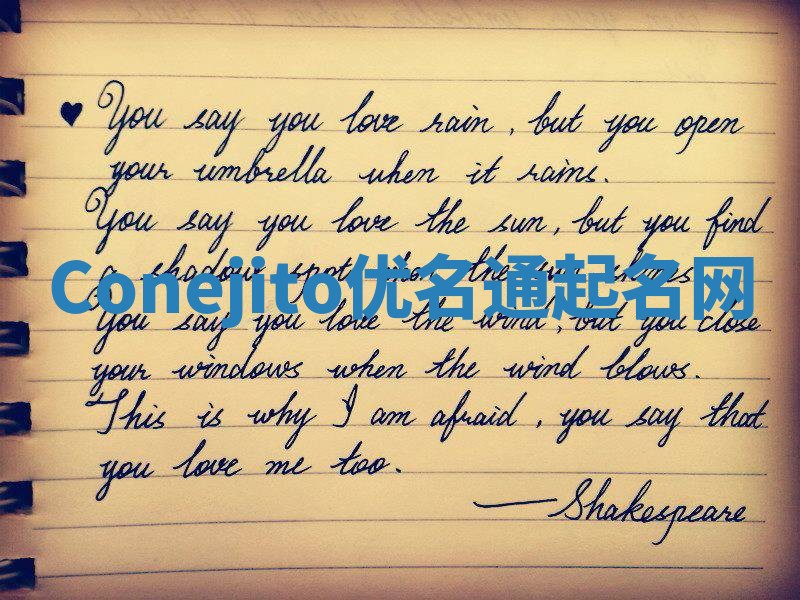 ♥ You say you love rain, but you open
your umbrella when it rains.
You say you love the sun, but you find
a shadow spot when the sun shines
Conejito优名通起名网
You say you love the wind, but you close
your windows when the wind blows.
This is why I am afraid, you say that
you love me too.
—Shakespeare